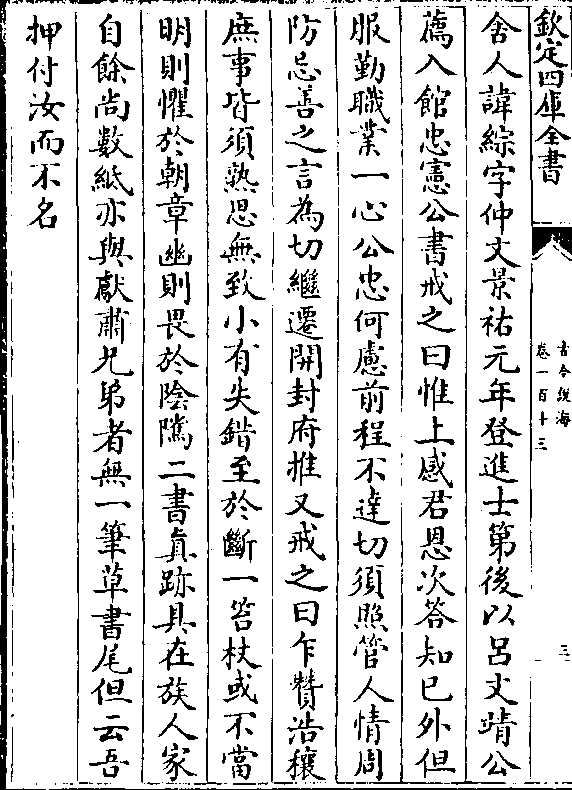 欽定四庫全書
古今說海
卷一百十三
三
舍人諱綜字仲文景祐元年登進士第後以呂文靖公
薦入館忠憲公書戒之曰惟上感君恩次答知已外但
服勤職業一心公忠何慮前程不達切須照管人情周
防忌善之言為切繼遷開封府推又戒之曰乍贊浩穰
庶事皆須熟思無致小有失錯至於斷一笞杖或不當
明則懼於朝章幽則畏於陰隲二書真跡具在族人家
自餘尚數紙亦與獻肅兄弟者無一筆草書尾但云吾
押付汝而不名